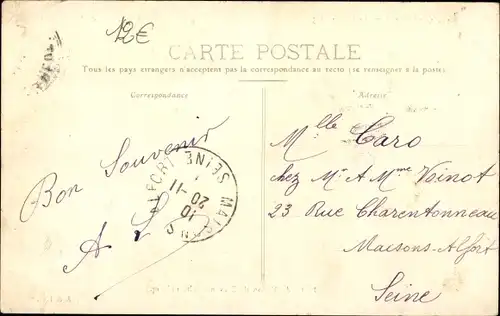 12€
CARTE POSTALE
Tous les pays étrangers n'acceptent pas la correspondance au recto (se renseigner à la poste)
Correspondance
Adresse
Bon Souvenir
A
Mlle Caro
chez Mr A Mme Voinot
23 Rue Charentonneau
Maisons-Alfort
Seine
10
20-11
SEINE